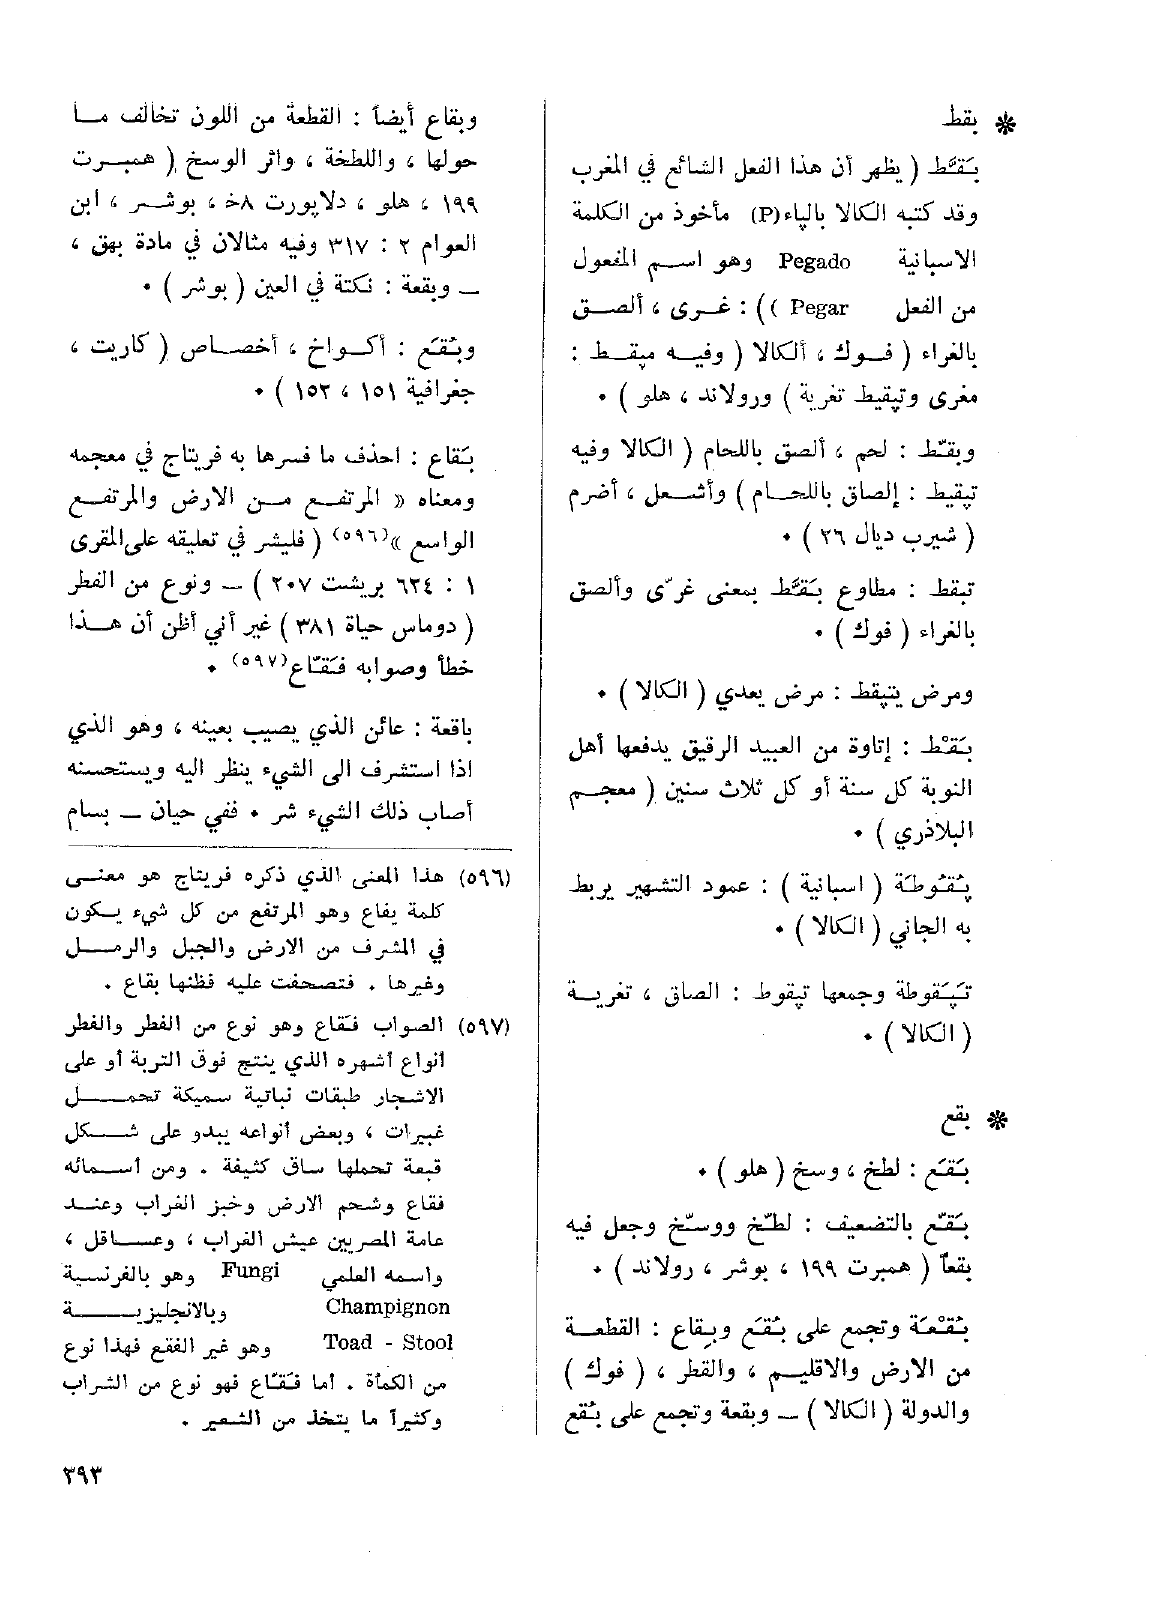 ❋ بقط
بَقَّط ( يظهر أن هذا الفعل الشائع في المغرب
وقد كتبه الكالا بالپاء (P) مأخوذ من الكلمة
الاسبانية Pegado وهو اسم المفعول
من الفعل Pegar )) : غرى ، ألصق
بالغراء ( فوك ، ألكالا ( وفيه مبقط :
مغرى وتپقيط تغرية ) ورولاند ، هلو ) ٠
وبقّط : لحم ، ألصق باللحام ( الكالا وفيه
تپقيط : إلصاق باللحام ) وأشعل ، أضرم
( شيرب ديال ٢٦ ) ٠
تبقط : مطاوع بَقَّط بمعنى غرّى وألصق
بالغراء ( فوك ) ٠
ومرض يتپقط : مرض يعدي ( الكالا ) ٠
بَقْط : إتاوة من العبيد الرقيق يدفعها أهل
النوبة كل سنة أو كل ثلاث سنين ( معجم
البلاذري ) ٠
پُقُوطة ( اسبانية ) : عمود التشهير يربط
به الجاني ( الكالا ) ٠
تَپَقوطة وجمعها تپقوط : الصاق ، تغرية
( الكالا ) ٠
❋ بقع
بَقَع : لطخ ، وسخ ( هلو ) ٠
بَقَّع بالتضعيف : لطّخ ووسّخ وجعل فيه
بقعاً ( همبرت ١٩٩ ، بوشر ، رولاند ) ٠
بُقْعَة وتجمع على بُقَع وبِقاع : القطعة
من الارض والاقليم ، والقطر ، ( فوك )
والدولة ( الكالا ) ــ وبقعة وتجمع على بُقع
وبقاع أيضاً : القطعة من اللون تخالف ما
حولها ، واللطخة ، واثر الوسخ ( همبرت
١٩٩ ، هلو ، دلاپورت ٨خ ، بوشر ، ابن
العوام ٢ : ٣١٧ وفيه مثالان في مادة بهق ،
ــ وبقعة : نكتة في العين ( بوشر ) ٠
وبُقَع : أكواخ ، أخصاص ( كاريت ،
جغرافية ١٥١ ، ١٥٢ ) ٠
بَقاع : احذف ما فسرها به فريتاج في معجمه
ومعناه « المرتفع من الارض والمرتفع
الواسع »(٥٩٦) ( فليشر في تعليقه على المقرى
١ : ٦٢٤ بريشت ٢٠٧ ) ــ ونوع من الفطر
( دوماس حياة ٣٨١ ) غير أني أظن أن هذا
خطأ وصوابه فَقّاع(٥٩٧) ٠
باقعة : عائن الذي يصيب بعينه ، وهو الذي
اذا استشرف الى الشيء ينظر اليه ويستحسنه
أصاب ذلك الشيء شر ٠ ففي حيان ــ بسام
(٥٩٦) هذا المعنى الذي ذكره فريتاج هو معنى
كلمة يفاع وهو المرتفع من كل شيء يكون
في المشرف من الارض والجبل والرمل
وغيرها . فتصحفت عليه فظنها بقاع .
(٥٩٧) الصواب فَقاع وهو نوع من الفطر والفطر
أنواع أشهره الذي ينتج فوق التربة أو على
الاشجار طبقات نباتية سميكة تحمل
غبيرات ، وبعض أنواعه يبدو على شكل
قبعة تحملها ساق كثيفة . ومن أسمائه
فقاع وشحم الارض وخبز الغراب وعند
عامة المصريين عيش الغراب ، وعساقل ،
واسمه العلمي Fungi وهو بالفرنسية
Champignon وبالانجليزية
Toad - Stool وهو غير الفقع فهذا نوع
من الكمأة . أما فَقّاع فهو نوع من الشراب
وكثيراً ما يتخذ من الشعير .
٣٩٣